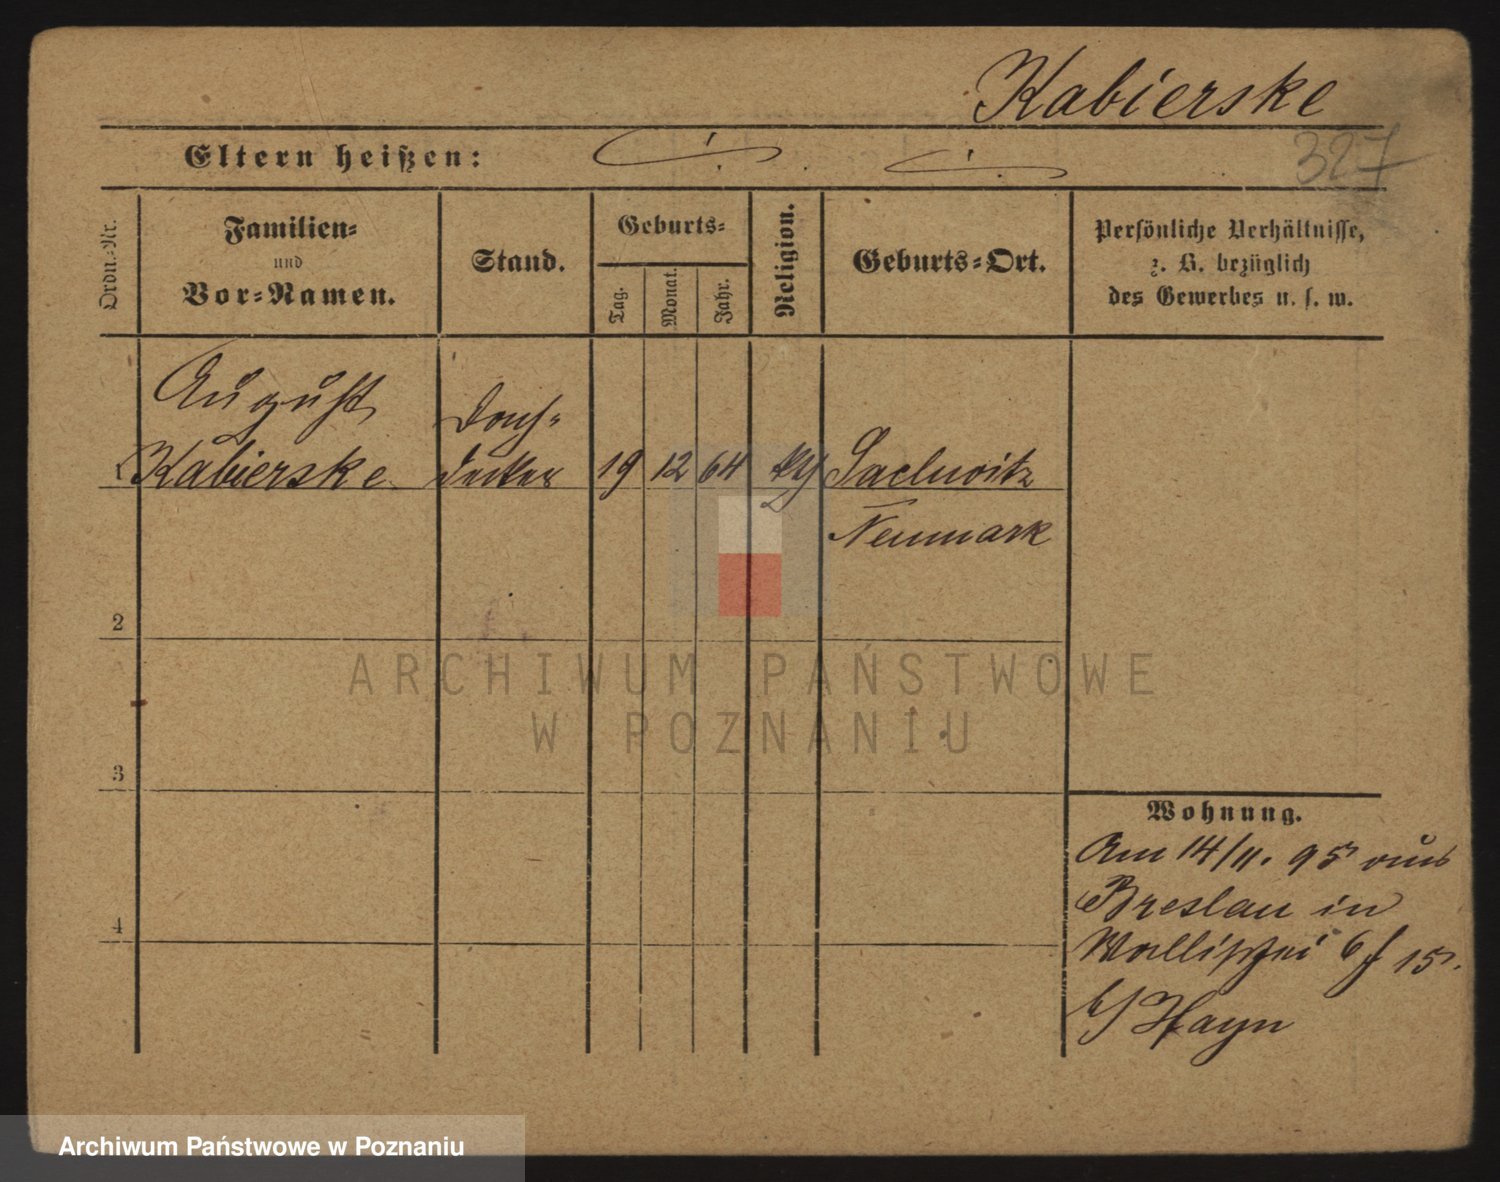 Kabierske
327
Eltern heißen:
Ordn.-Nr.
Familien-
und
Vor-Namen.
Stand.
Geburts-
Tag.
Monat.
Jahr.
Religion.
Geburts-Ort.
Persönliche Verhältnisse,
z. B. bezüglich
des Gewerbes u. s. w.
August
Kabierske
Dach-
decker
19 12 64
Sachwitz
Neumark
2
3
4
Wohnung.
Am 14/11. 95 aus
Breslau in
Wallischei 15.
b/ Hayn
ARCHIWUM PAŃSTWOWE
W POZNANIU
Archiwum Państwowe w Poznaniu